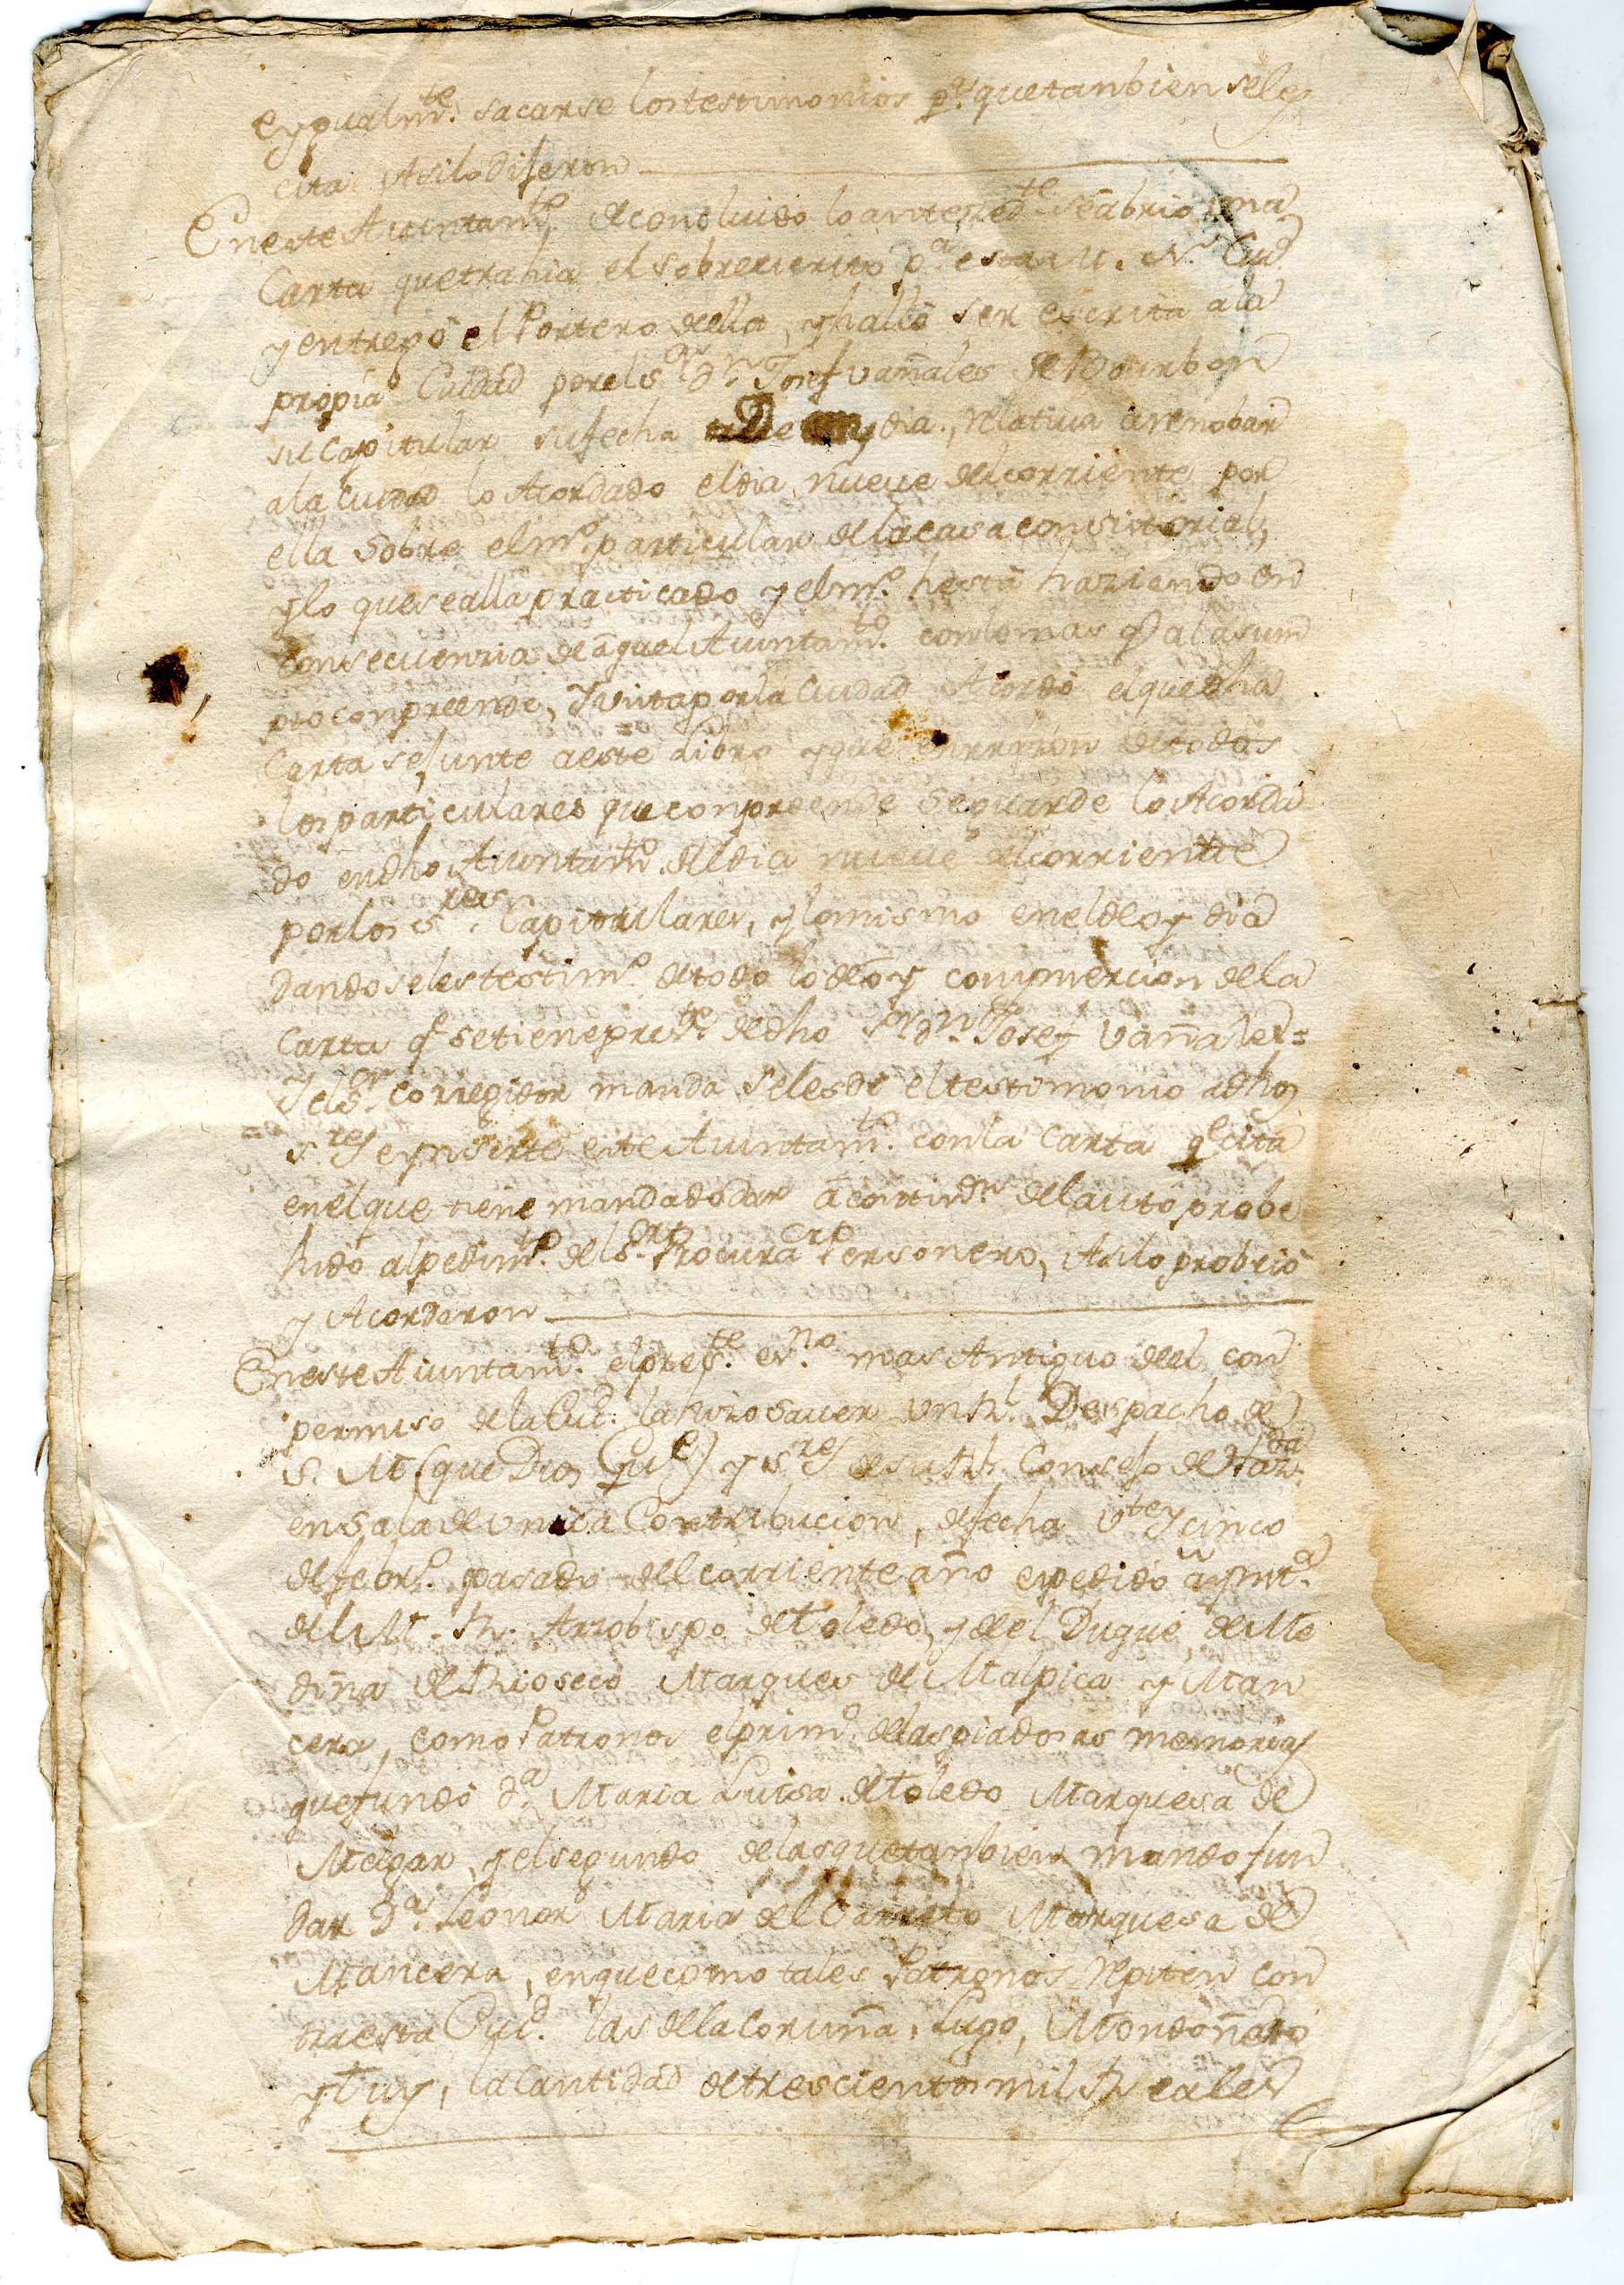 eygualmte. sacarse los testimonios pa. que tanbien se les
cita Asilo dijeron
En este Aiuntamto. el concluido lo antezedte. se abrio una
Carta que trahia el sobreescrito pa. esta M. N. Ciud
y entregó el Portero della, y halló ser escrita a la
propia Ciudad por el Sor. Dn. Josef vañales de Bourbon
su Capitular su fecha de oy dia, relatiua a renobar
a la Ciudad lo Acordado el dia nueue del corriente por
ella sobre el mo. particular de la casa consistorial,
y lo que se alla practicado y el mo. hestá haziendo en
consecuenzia de aquel Aiuntamto. con lo mas q al asum
pto conpreende, Y vista por la Ciudad Acordó el que dha
Carta se junte a este Libro y que en rrazon de todos
los particulares que conpreende se guarde lo Acorda
do en dho Aiuntamto. del dia nueue del corriente
por los Sres. Capitulares, y lo mismo en el de oy dia
dandoseles testimo. de todo lo de oy con ynsercion de la
Carta qe se tiene preste. de dho Sr. Dn. Josef vañales =
Y el Sor. corregidor manda se les dé el testimonio a dhos
Sres. e ynserte este Aiuntamto. con la Carta qe cita
en el que tiene mandado dar a continn. del auto probe
hido al pedimto. del Sor. Procuraor Personero, Asilo probeió
y Acordaron
En este Aiuntamto. el preste. esno. mas Antiguo deel con
permiso de la Ciud. la hizo sauer un Rl. Despacho de
S. M (que Dios Gue) y Sres de su Rl. Consejo de Hazda.
en sala de vnica Contribucion, de fecha vte y cinco
de febro. pasado del corriente año espedido a ynsta.
del M. R. Arzobispo de toledo, y de el Duque de Me
dina de Rioseco Marques de Malpica y Man
cera, como Patronos el primo. de las piadosas memorias
que fundó Da. Maria Luisa de toledo Marquesa de
Melgar, y el segundo de las que tanbien mando fun
dar Da. Leonor Maria del Carreto Marquesa de
Mancera, en que como tales Patronos repiten con
tra esta Ciud. las de la Coruña, Lugo, Mondoñedo
y tuy, la Cantidad de trescientos mil Reales